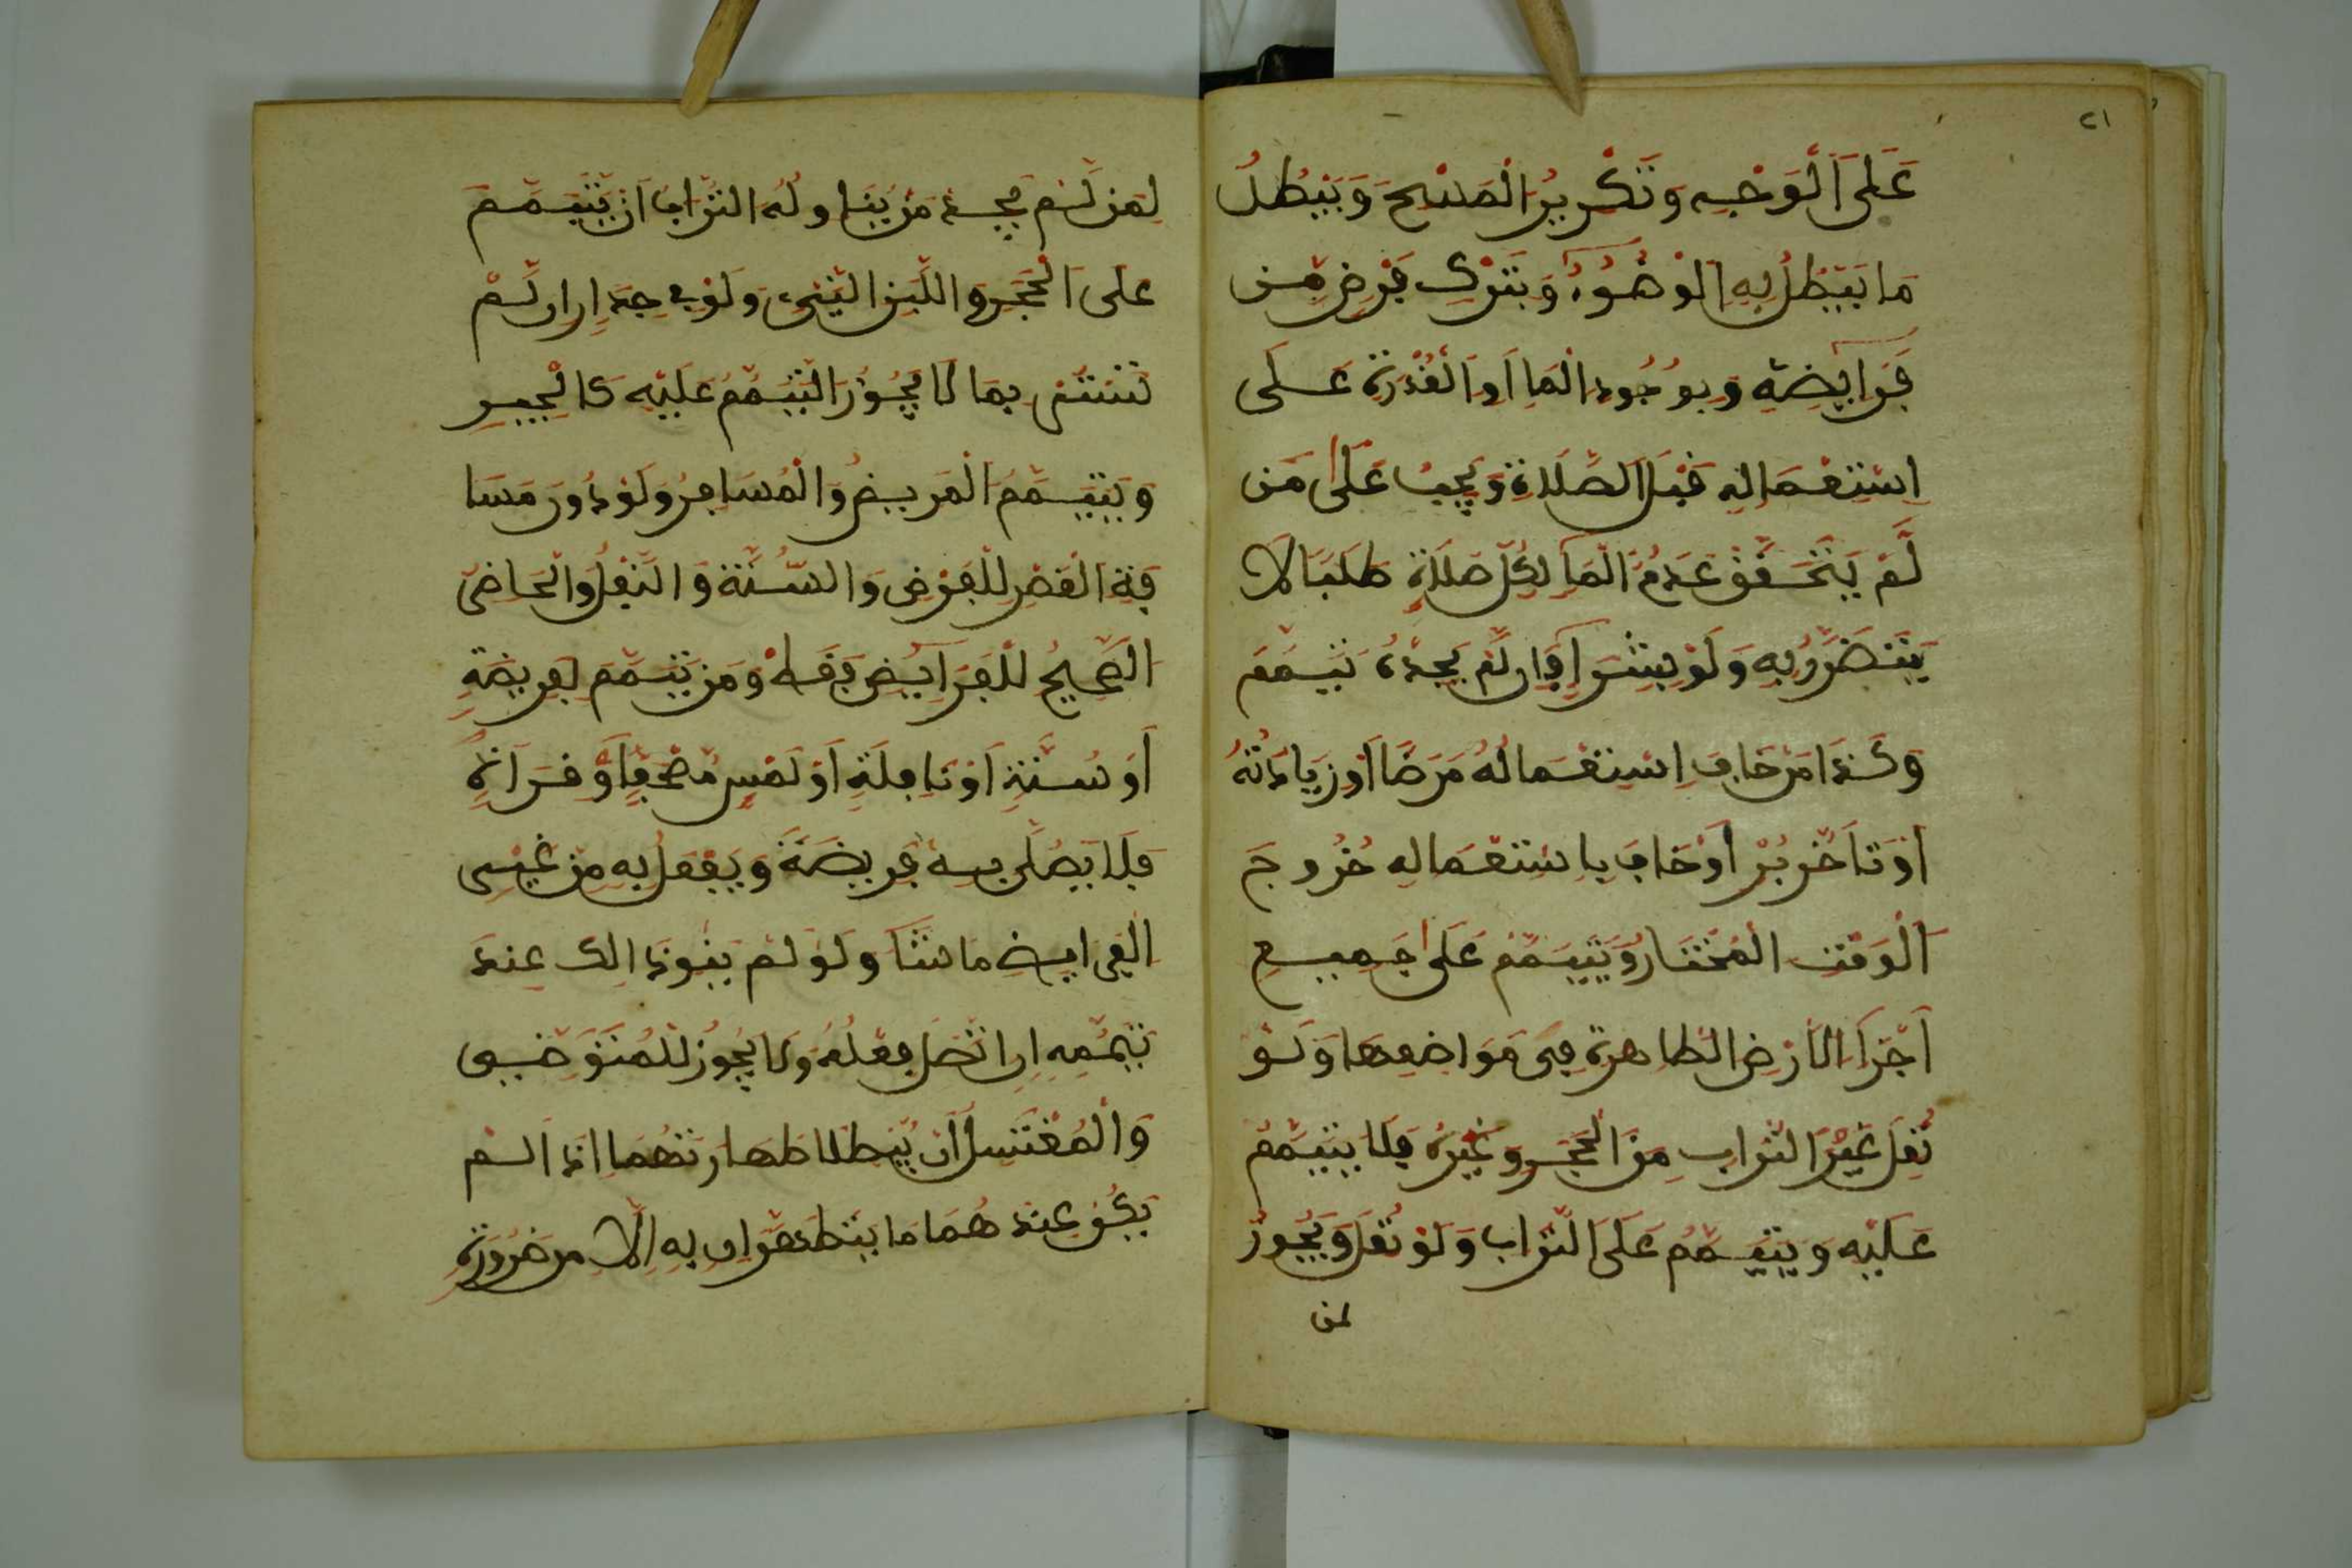 ٢١
عَلَى الْوَجْهِ وَتَكْرِيرُ الْمَسْحِ وَيَبْطُلُ
مَا يَبْطُلُ بِهِ الْوُضُوءُ وَبِتَرْكِ فَرْضٍ مِن
فَرَايِضِهِ وَبِوُجُودِ الْمَا أَوِ الْقُدْرَةِ عَلَى
اسْتِعْمَالِهِ قَبْلَ الصَّلَاةِ وَيَجِبُ عَلَى مَن
لَّمْ يَتَحَقَّقْ عَدَمَ الْمَا لِكُلِّ صَلَاةٍ طَلَبًا لَا
يَتَضَرَّرُ بِهِ وَلَوْ بِشِرَا فَإِن لَّمْ يَجِدْهُ تَيَمَّمَ
وَكَذَا مَنْ خَافَ اسْتِعْمَالُهُ مَرَضًا أَوْ زِيَادَتَهُ
أَوْ تَأَخُّرَ بُرْءٍ أَوْ خَافَ بِاسْتِعْمَالِهِ خُرُوجَ
الْوَقْتِ الْمُخْتَارِ وَيَتَيَمَّمُ عَلَى جَمِيعِ
أَجْزَا الْأَرْضِ الطَّاهِرَةِ فِي مَوَاضِعِهَا وَلَوْ
نُقِلَ غَيْرُ التُّرَابِ مِنَ الْحَجَرِ وَغَيْرِهِ فَلَا يَتَيَمَّمُ
عَلَيْهِ وَيَتَيَمَّمُ عَلَى التُّرَابِ وَلَوْ نُقِلَ وَيَجُوزُ
لمن
لِمَن لَّمْ يَجِدْ مَنْ يُنَاوِلُهُ التُّرَابَ أَنْ يَّتَيَمَّمَ
عَلَى الْحَجَرِ وَاللَّبِنِ النِّيِّ وَلَوْ فِي جِدَارٍ إِن لَّمْ
تُنْشَ بِمَا لَا يَجُوزُ التَّيَمُّمُ عَلَيْهِ كَالْجِيرِ
وَيَتَيَمَّمُ الْمَرِيضُ وَالْمُسَافِرُ وَلَوْ دُونَ مَسَا
فَةِ الْقَصْرِ لِلْفَرْضِ وَالسُّنَّةِ وَالنَّفْلِ وَالْحَاضِرُ
الصَّحِيحُ لِلْفَرَايِضِ فَقَطْ وَمَن تَيَمَّمَ لِفَرِيضَةٍ
أَوْ سُنَّةٍ أَوْ نَافِلَةٍ أَوْ لَمْسِ مُصْحَفٍ أَوْ قِرَاةٍ
فَلَا يُصَلِّي بِهِ فَرِيضَةً وَيَفْعَلُ بِهِ مِنْ غَيْرِ
الْفَرَايِضِ مَا شَا وَلَوْ لَمْ يَنْوِ ذَالِكَ عِندَ
تَيَمُّمِهِ إِنِ اتَّصَلَ فِعْلُهُ وَلَا يَجُوزُ لِلْمُتَوَضِّي
وَالْمُغْتَسِلِ أَنْ يُّبْطِلَا طَهَارَتَهُمَا إِذَا لَمْ
يَكُنْ عِندَهُمَا مَا يَتَطَهَّرَانِ بِهِ إِلَّا مِن ضَرُورَةٍ